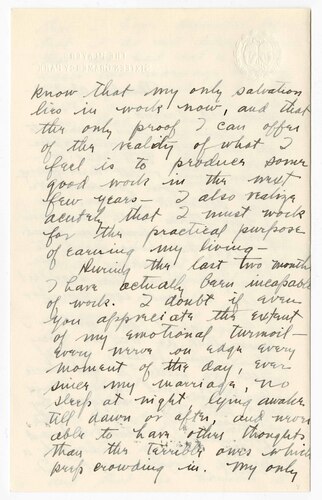 know that my only salvation
lies in work now, and that
the only proof I can offer
of the reality of what I
feel is to produce some
good work in the next
few years — I also realize
acutely that I must work
for the practical purpose
of earning my living —
During the last two months
I have actually been incapable
of work. I doubt if even
you appreciate the extent
of my emotional turmoil —
every nerve on edge every
moment of the day, ever
since my marriage, no
sleep at night, lying awake
till dawn or after, and never
able to have other thoughts
than the terrible ones which
keep crowding in. My only